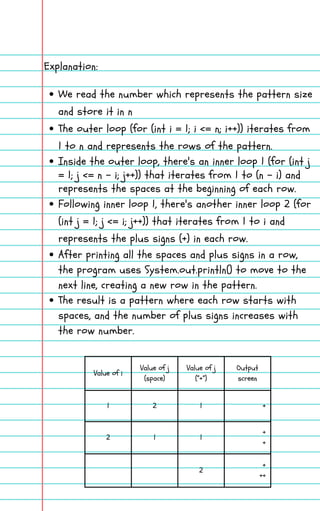 Explanation:
• We read the number which represents the pattern size
and store it in n
• The outer loop (for (int i = 1; i <= n; i++)) iterates from
1 to n and represents the rows of the pattern.
• Inside the outer loop, there's an inner loop 1 (for (int j
= 1; j <= n - i; j++)) that iterates from 1 to (n - i) and
represents the spaces at the beginning of each row.
• Following inner loop 1, there's another inner loop 2 (for
(int j = 1; j <= i; j++)) that iterates from 1 to i and
represents the plus signs (+) in each row.
• After printing all the spaces and plus signs in a row,
the program uses System.out.println() to move to the
next line, creating a new row in the pattern.
• The result is a pattern where each row starts with
spaces, and the number of plus signs increases with
the row number.
Value of i
Value of j
(space)
Value of j
("+")
Output
screen
1 2 1 +
2 1 1 +
+
2 +
++